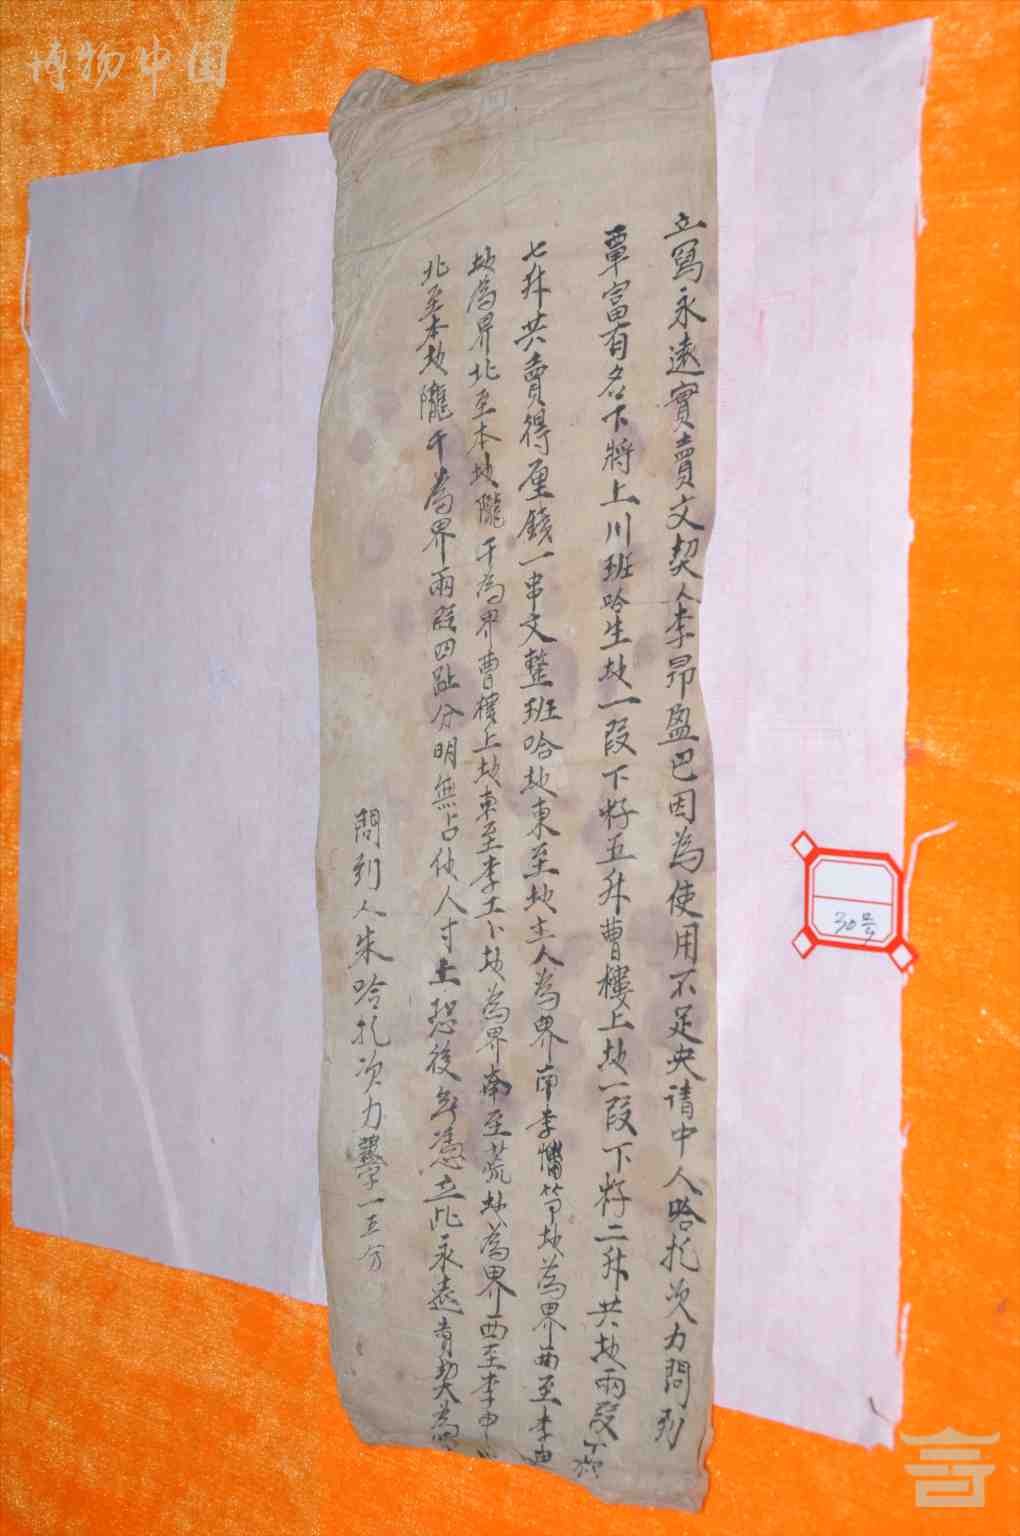 博物中国
立寫永遠實賣文契人李昂盈巴因為使用不足央請中人哈扎次力問到
覃富有名下將上川班哈生地一段下籽五升曹樓上地一段下籽二升共地兩段下籽
七升共賣得厘錢一串文整班哈地東至地主人為界南李 等地為界西至李
地為界北至本地隴干為界曹樓上地東至李土卜地為界南至荒地為界西至李
北至本地隴干為界兩段四趾分明無占他人寸土恐後無憑立此永遠賣契為
問到人朱哈扎次力 一五分
30号